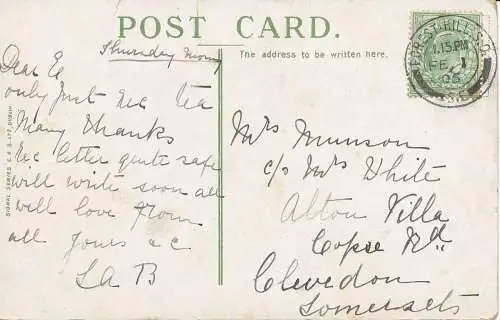 POST CARD.
The address to be written here.
Thursday Morng
Dear Ec
only Just Rec tea
Many Thanks
Rec letter quite safe
will write soon all
will love from
all Yours ac
L A B
Mrs Munson
c/o Mrs White
Alton Villa
Copse Rd
Clevedon
Somersets
FOREST HILL S.O.
1.15 PM
FE 1
06
SIGNAL SERIES E. & S. LTD, DUBLIN.